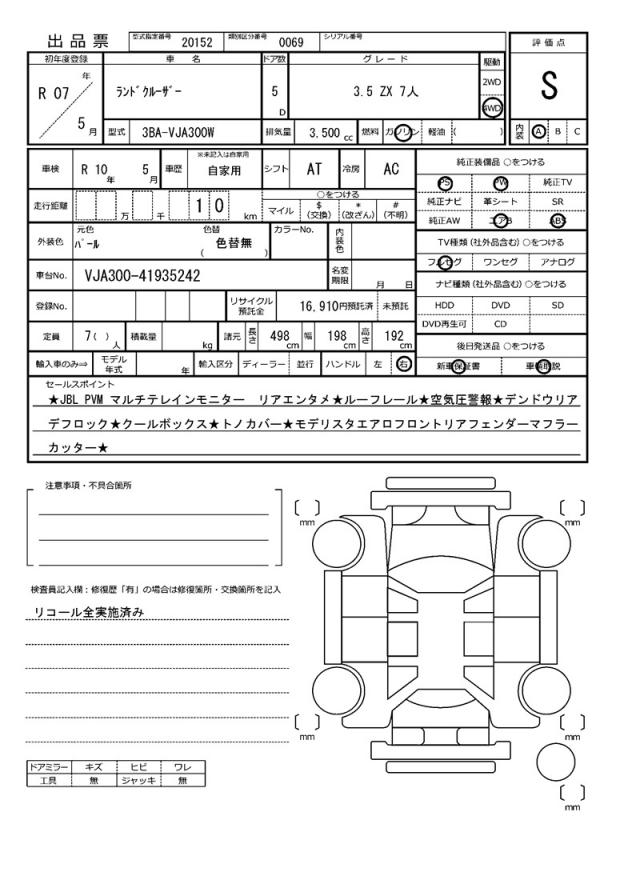 出品票 型式指定番号 20152 類別区分番号 0069 シリアル番号
評価点
S
内装 A B C
初年度登録 車名 ドア数 グレード 駆動
R 07 年 5 月 ランドクルーザー 5 D 3.5 ZX 7人 2WD 4WD
型式 3BA-VJA300W 排気量 3.500 cc 燃料 ガソリン 軽油 ( )
車検 R 10 年 5 月 車歴 ※未記入は自家用 自家用 シフト AT 冷房 AC
走行距離 万 千 1 0 km ○をつける マイル $ (交換) * (改ざん) # (不明)
外装色 元色 パール 色替 色替無 ( ) カラーNo. 内装色
車台No. VJA300-41935242 名変期限 月 日
登録No. リサイクル預託金 16,910円預託済 未預託
定員 7( ) 人 積載量 kg 諸元 長さ 498 cm 幅 198 cm 高さ 192 cm
輸入車のみ⇒ モデル年式 年 輸入区分 ディーラー 並行 ハンドル 左 右
純正装備品 ○をつける
PS PW 純正TV
純正ナビ 革シート SR
純正AW エアB ABS
TV種類(社外品含む) ○をつける
フルセグ ワンセグ アナログ
ナビ種類(社外品含む) ○をつける
HDD DVD SD
DVD再生可 CD
後日発送品 ○をつける
新車保証書 車輌取説
セールスポイント
★JBL PVM マルチテレインモニター リアエンタメ★ルーフレール★空気圧警報★デンドウリア
デフロック★クールボックス★トノカバー★モデリスタエアロフロントリアフェンダーマフラー
カッター★
注意事項・不具合箇所
検査員記入欄：修復歴「有」の場合は修復箇所・交換箇所を記入
リコール全実施済み
ドアミラー キズ ヒビ ワレ
工具 無 ジャッキ 無
[ ] mm [ ] mm
[ ] mm [ ] mm
[ ] mm